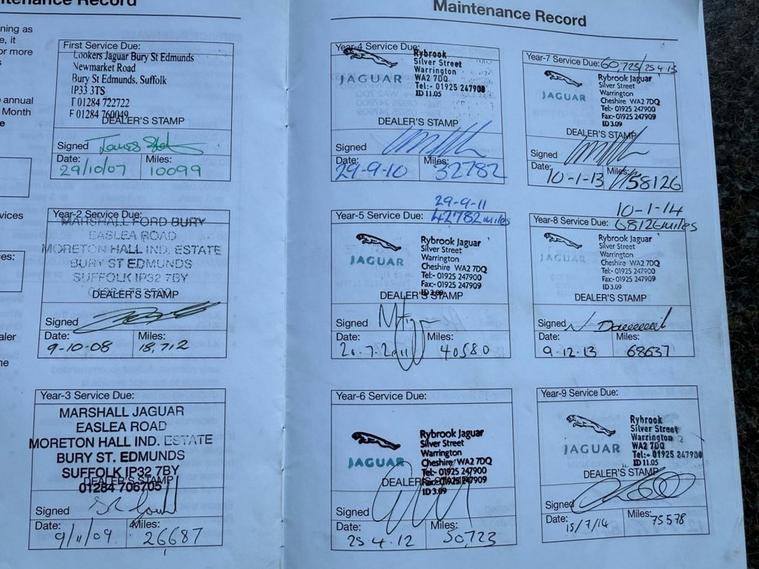 Maintenance Record
ning as
e, it
or more
annual
Month
e
vices
es:
aler
ne
First Service Due:
Lookers Jaguar Bury St Edmunds
Newmarket Road
Bury St. Edmunds, Suffolk
IP33 3TS
T 01284 722722
F 01284 760049
DEALER'S STAMP
Signed
Date: Miles:
29/10/07 10099
Year-2 Service Due:
MARSHALL FORD BURY
EASLEA ROAD
MORETON HALL IND. ESTATE
BURY ST EDMUNDS
SUFFOLK IP32 7BY
DEALER'S STAMP
Signed
Date: Miles:
9-10-08 18,712
Year-3 Service Due:
MARSHALL JAGUAR
EASLEA ROAD
MORETON HALL IND. ESTATE
BURY ST. EDMUNDS
SUFFOLK IP32 7BY
01284 706705
DEALER'S STAMP
Signed
Date: Miles:
9/11/09 26687
Maintenance Record
Year-4 Service Due:
JAGUAR
Rybrook
Silver Street
Warrington
WA2 7DQ
Tel:- 01925 247900
ID 11.05
DEALER'S STAMP
Signed
Date: Miles:
29-9-10 32782
29-9-11
Year-5 Service Due: 42782 miles
JAGUAR
Rybrook Jaguar
Silver Street
Warrington
Cheshire WA2 7DQ
Tel:- 01925 247900
Fax:- 01925 247909
ID 3.09
DEALER'S STAMP
Signed
Date: Miles:
40580
Year-6 Service Due:
JAGUAR
Rybrook Jaguar
Silver Street
Warrington
Cheshire WA2 7DQ
Tel:- 01925 247900
Fax:- 01925 247909
ID 3.09
DEALER'S STAMP
Signed
Date: Miles:
25 4.12 50723
Year-7 Service Due: 60723/25 4 13
JAGUAR
Rybrook Jaguar
Silver Street
Warrington
Cheshire WA2 7DQ
Tel:- 01925 247900
Fax:- 01925 247909
ID 3.09
DEALER'S STAMP
Signed
Date: Miles:
10-1-13 58126
10-1-14
Year-8 Service Due: 68126 miles
JAGUAR
Rybrook Jaguar
Silver Street
Warrington
Cheshire WA2 7DQ
Tel:- 01925 247900
Fax:- 01925 247909
ID 3.09
DEALER'S STAMP
Signed
Date: Miles:
9-12-13 68637
Year-9 Service Due:
JAGUAR
Rybrook
Silver Street
Warrington
WA2 7DQ
Tel:- 01925 247900
ID 11.05
DEALER'S STAMP
Signed
Date: Miles:
15/7/14 75578